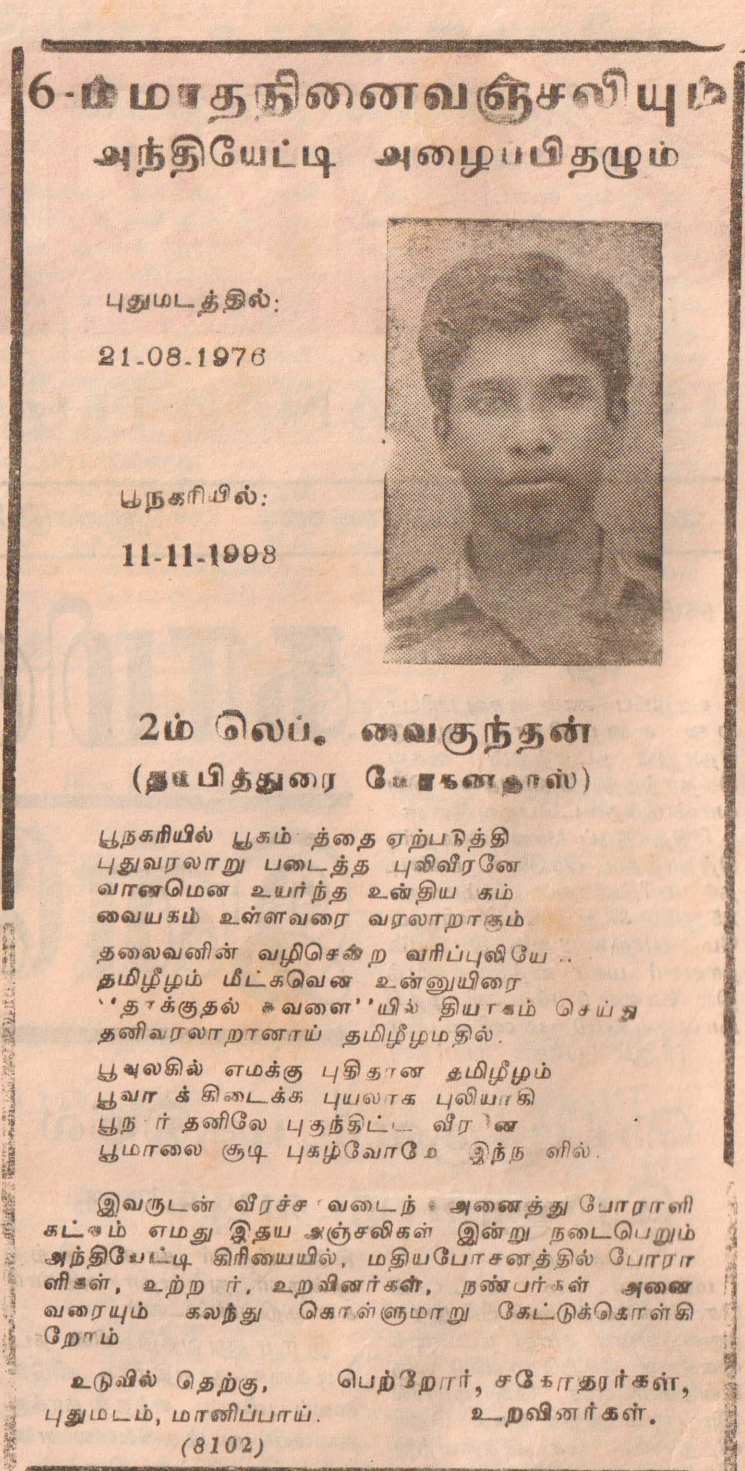 6-ம் மாதநினைவஞ்சலியும்
அந்தியேட்டி அழைப்பிதழும்
புதுமடத்தில்:
21-08-1976
பூநகரியில்:
11-11-1993
2ம் லெப். வைகுந்தன்
(தம்பித்துரை
பூநகரியில் பூகம் த்தை ஏற்படுத்தி
புதுவரலாறு படைத்த புலிவீரனே
வானமென உயர்ந்த உன்தியாகம்
வையகம் உள்ளவரை வரலாறாகும்
தலைவனின் வழிசென்ற வரிப்புலியே..
தமிழீழம் மீட்கவென உன்னுயிரை
"தாக்குதல் தவளை"யில் தியாகம் செய்து
தனிவரலாறானாய் தமிழீழமதில்.
பூவுலகில் எமக்கு புதிதான தமிழீழம்
கிடைக்க புயலாக புலியாகி
தனிலே புகுந்திட்ட
பூமாலை சூடி புகழ்வோமே
இவருடன் வீரச்சாவடைந்த அனைத்து போராளி
கட்கும் எமது இதய அஞ்சலிகள் இன்று நடைபெறும்
அந்தியேட்டி கிரியையில், மதியபோசனத்தில் போரா
ளிகள், உற்றார், உறவினர்கள், நண்பர்கள் அனை
வரையும் கலந்து கொள்ளுமாறு கேட்டுக்கொள்கி
றோம்
உடுவில் தெற்கு, பெற்றோர், சகோதரர்கள்,
புதுமடம், மானிப்பாய். உறவினர்கள்.
(8102)